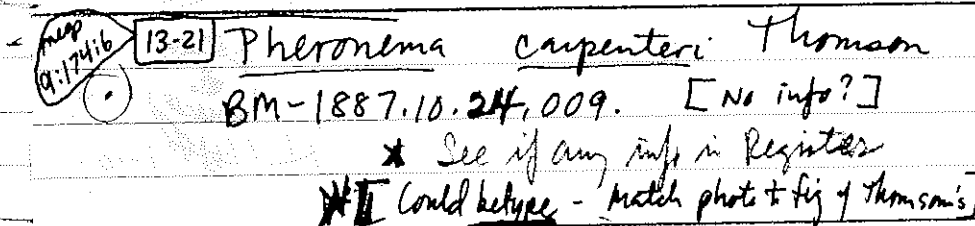 neg 13-21 Pheronema carpenteri Thomson
9:174:6
BM-1887.10.24.009. [No info?]
* See if any info in Register
*[Could be type - Match photo to fig of Thomson's]